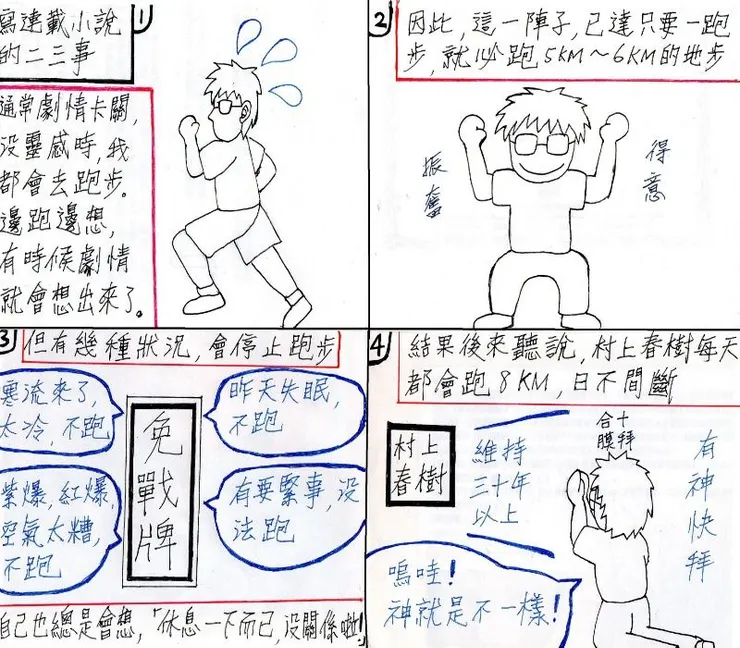 寫連載小說
的二三事
1
通常劇情卡關,
沒靈感時,我
都會去跑步。
邊跑邊想,
有時候劇情
就會想出來了。
2
因此,這一陣子,已達只要一跑
步,就必跑5KM~6KM的地步
振奮
得意
3
但有幾種狀況,會停止跑步
寒流來了,
太冷,不跑
昨天失眠,
不跑
免戰牌
紫爆,紅爆,
空氣太糟,
不跑
有要緊事,沒
法跑
自己也總是會想,「休息一下而已,沒關係啦!」
4
結果後來聽說,村上春樹每天
都會跑8KM,日不間斷
村上
春樹
維持
三十年
以上
合十
膜拜
有神快拜
嗚哇!
神就是不一樣!